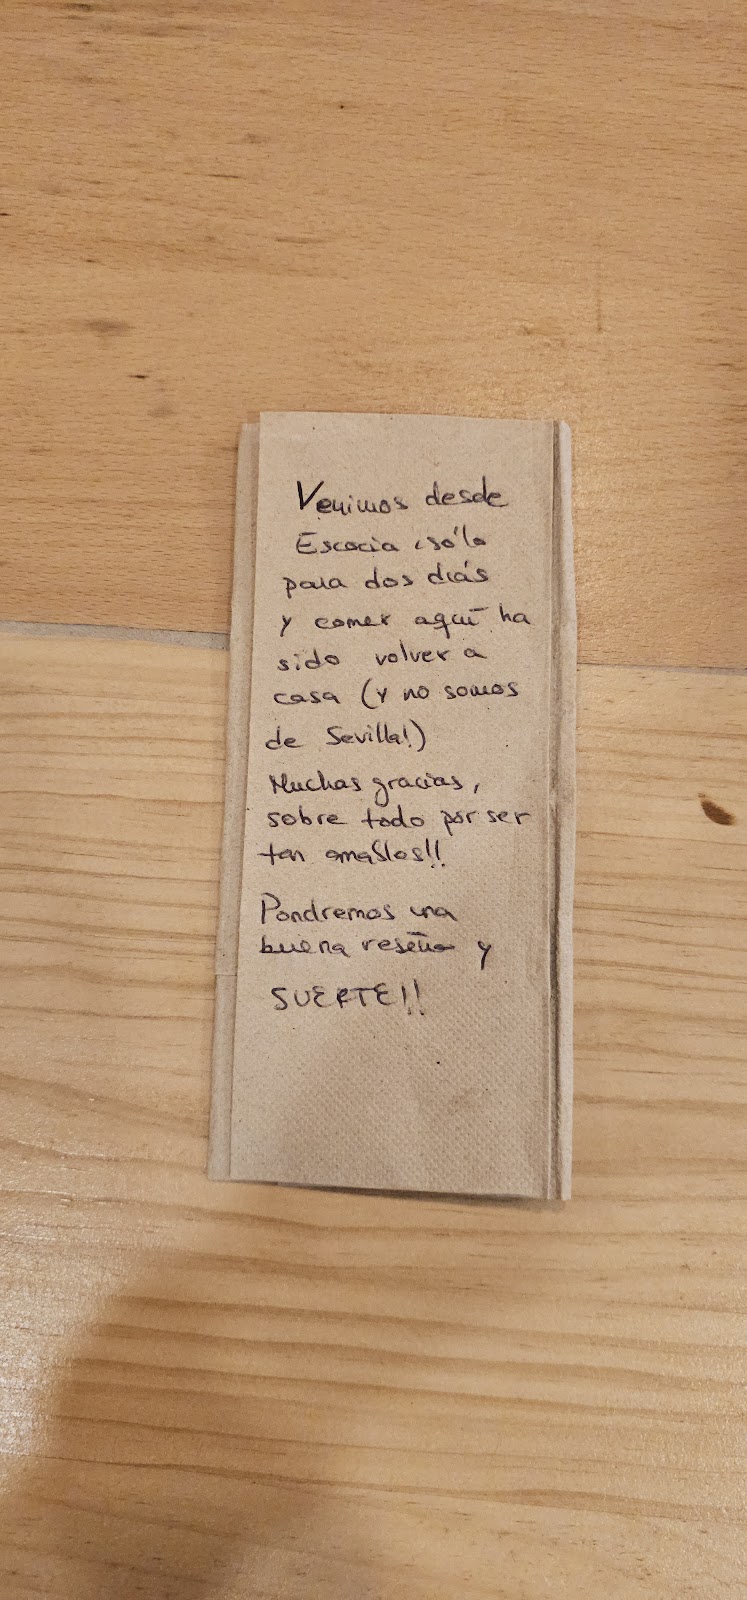 Venimos desde
Escocia sólo
para dos días
y comer aquí ha
sido volver a
casa (y no somos
de Sevilla!)
Muchas gracias,
sobre todo por ser
tan amables!!
Pondremos una
buena reseña y
SUERTE!!